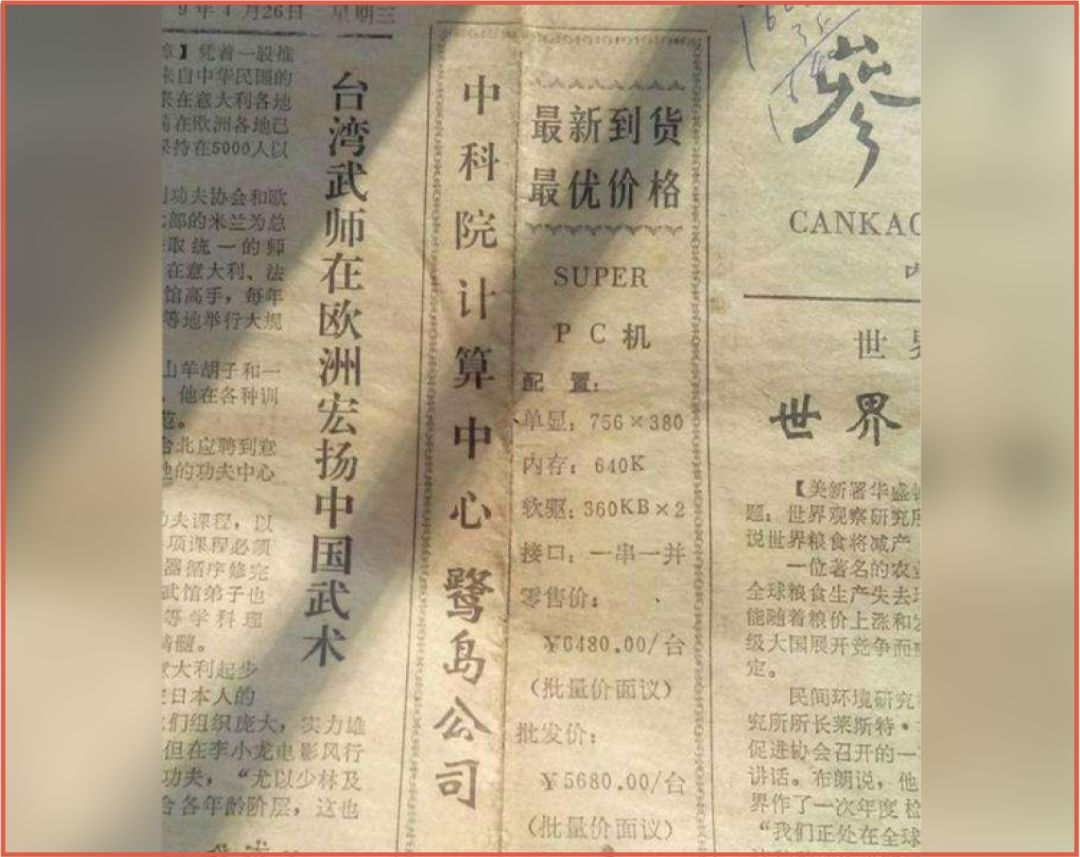 9年4月26日 星期三
凭着一股推
来自中华民国的
来在意大利各地
前在欧洲各地已
保持在5000人以
功夫协会和欧
部的米兰为总
取统一的师
在意大利、法
馆高手，每年
等地举行大规
山羊胡子和一
他在各种训
台北应聘到意
地的功夫中心
功夫课程，以
项课程必须
器循序修完
武馆弟子也
等学科理
精髓。
意大利起步
日本人的
们组织庞大，实力雄
但在李小龙电影风行
功夫，“尤以少林及
合各年龄阶层，这也
台湾武师在欧洲宏扬中国武术
中科院计算中心鹭岛公司
最新到货
最优价格
SUPER
PC机
配置：
单显：756×380
内存：640K
软驱：360KB×2
接口：一串一并
零售价：
￥6480.00/台
（批量价面议）
批发价：
￥5680.00/台
（批量价面议）
参
CANKAO
内
世界
世界
【美新署华盛顿
题：世界观察研究所
说世界粮食将减产
一位著名的农业
全球粮食生产失去
能随着粮价上涨和发
级大国展开竞争而
定。
民间环境研究
究所所长莱斯特·
促进协会召开的一
讲话。布朗说，他
界作了一次年度检
“我们正处在全球